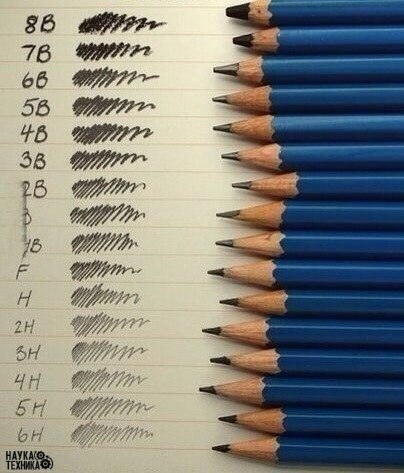 8B
7B
6B
5B
4B
3B
2B
B
HB
F
H
2H
3H
4H
5H
6H
НАУКА
ТЕХНИКА